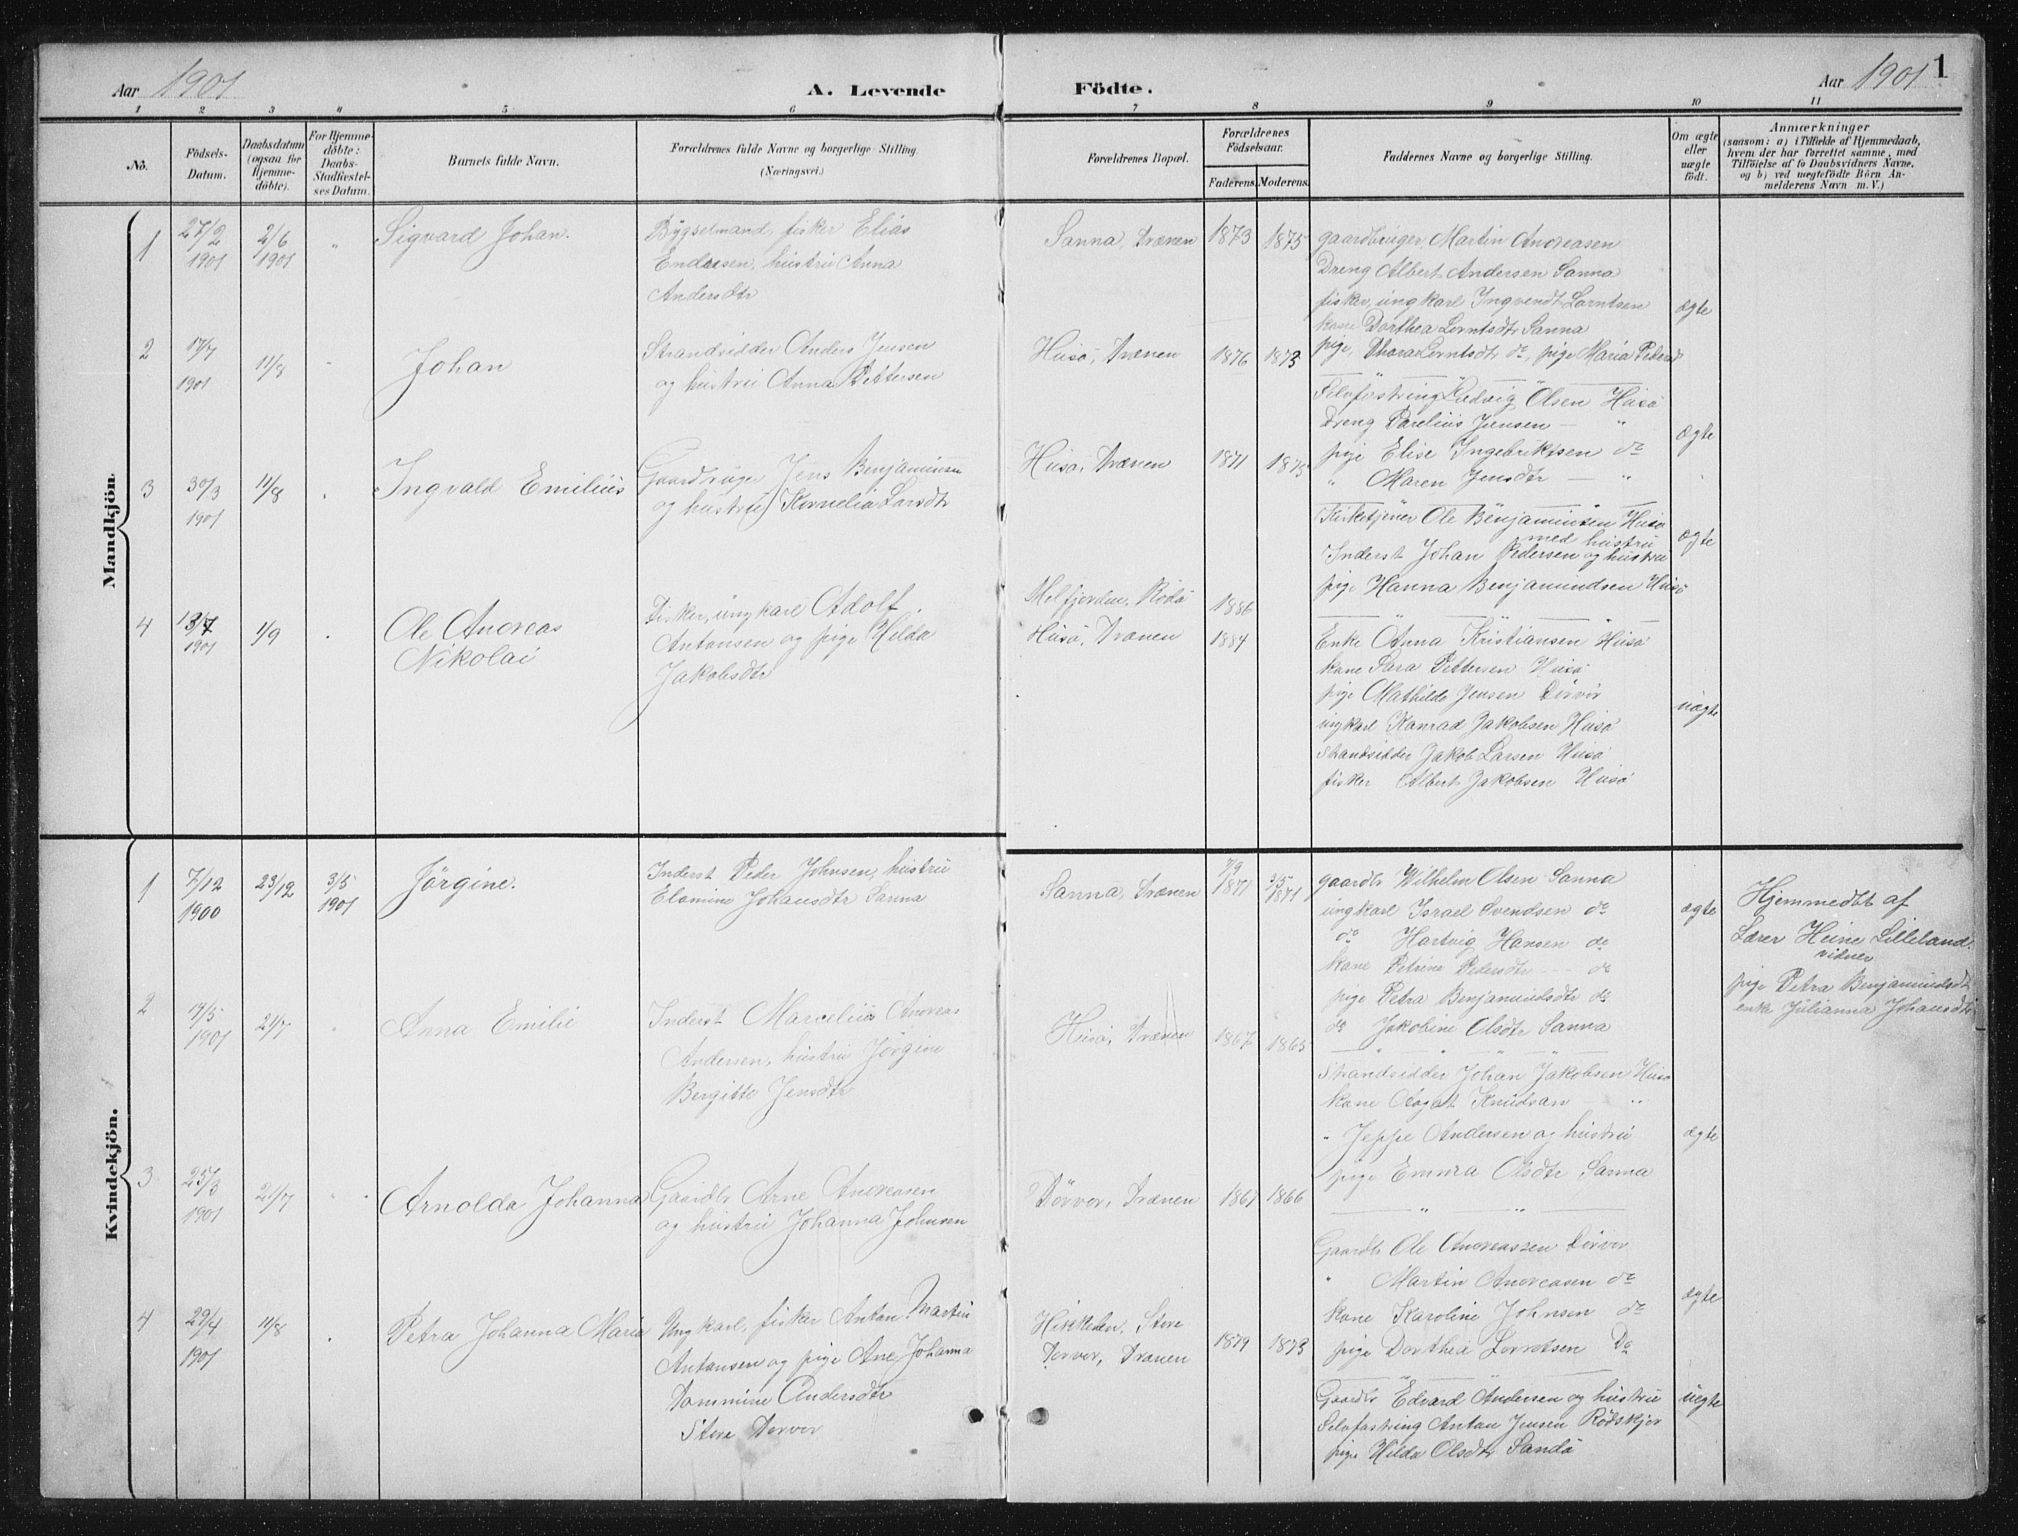 Aar 1901
A. Levende Födte.
Aar 1901
1
1 2 3 4 5 6 7 8 9 10 11
No.
Födsels-Datum.
Daabsdatum (ogsaa for Hjemmedöbte).
For Hjemmedöbte: Daabs-Stadfæstelses Datum.
Barnets fulde Navn.
Forældrenes fulde Navne og borgerlige Stilling.
(Næringsvei.)
Forældrenes Bopæl.
Forældrenes Födselsaar.
Faderens. Moderens.
Faddernes Navne og borgerlige Stilling.
Om ægte eller uægte födt.
Anmærkninger
(saasom: a) i Tilfælde af Hjemmedaab, hvem der har forrettet samme, med Tilföielse af to Daabsvidners Navne, og b) ved uægtefödte Börn Anmelderens Navn m. V.)
Mandkjön.
1 27/2 1901 2/6 1901 " Sigvard Johan.
Bygselmand, fisker Elias
Endresen, hustru Anna
Andersdtr
Sanna, Trænen 1873 1875
gaardbruger Martin Andreasen
Dreng Albert Andersen Sanna
fisker, ungkarl Ingvendt Lorntsen
kone Dorthea Lorntsdtr Sanna
pige, Thora Lorntsdtr do, pige Maria Peders
ægte
2 17/7 1901 11/8 Johan
Strandsidder Anders Jensen
og hustru Anna Pettersen
Husö, Trænen 1876 1873
Selvfostring Ludvig Olsen Husö
Dreng Parelius Jensen — "
pige Elise Ingebriktsen do
" Maren Jensdtr — "
ægte
3 30/3 1901 11/8 Ingvald Emilius
Gaardbruger Jens Benjaminsen
og hustru Kornelia Larsdtr
Husö, Trænen 1871 1875
Kirketjener Ole Benjaminsen Husö
med hustru
Inderst Johan Pedersen og hustru
pige Hanna Benjamindsen Husö
ægte
4 13/7 1901 1/9 Ole Andreas
Nikolai
Fisker, ungkarl Adolf
Antonsen og pige Hilda
Jakobsdtr
Melfjorden, Rödö 1886
Husö, Trænen 1884
Enke Anna Kristiansen Husö
kone Sara Pettersen Husö
pige Mathilde Jensen Dörvör
ungkarl Konrad Jakobsen Husö
Strandsidder Jakob Larsen Husö
fisker Albert Jakobsen Husö
uægte
Kvindekjön.
1 7/12 1900 23/12 3/5 1901 Jörgine.
Inderst Peder Johnsen, hustru
Elamine Johansdtr Sanna
Sanna, Trænen 7/9 1871 3/5 1871
gaardbr Wilhelm Olsen Sanna
ungkarl Israel Svendsen do
do Hartvig Hansen do
kone Petrine Pedersdtr — do
pige Petra Benjamindsdtr do
do Jakobine Olsdtr Sanna
ægte
Hjemmedöbt af
Lærer Heine Lilleland.
vidner
pige Petra Benjamindsdtr
enke Julianna Johansdtr
2 17/5 1901 21/7 Anna Emilie
Inderst Marcelius Andreas
Andersen, hustru Jörgine
Bergitte Jensdtr
Husö, Trænen 1867 1865
Strandsidder Johan Jakobsen Husö
kone Aagot Knudsen — "
" Jeppe Andersen og hustru
pige Emma Olsdtr Sanna
ægte
3 25/3 1901 21/7 " Arnolda Johanna
Gaardbr Arne Andreasen
og hustru Johanna Johnsen
Dörvör, Trænen 1867 1866
Gaardbr Ole Andreassen Dörvör
" Martin Andreasen do
kone Karoline Johnsen do
pige Dorthea Lorntsen Do
ægte
4 29/4 1901 11/8 Petra Johanna Maria
Ungkarl, fisker Anton Martin
Antonsen og pige Ane Johanna
Tommine Andersdtr
Store Dorvor
Store
Dorvor, Trænen 1879 1873
Gaardbr Edvard Andersen og hustru
Selvfostring Anton Jensen Rödskjer
pige Hilda Olsdtr Sandö
uegte